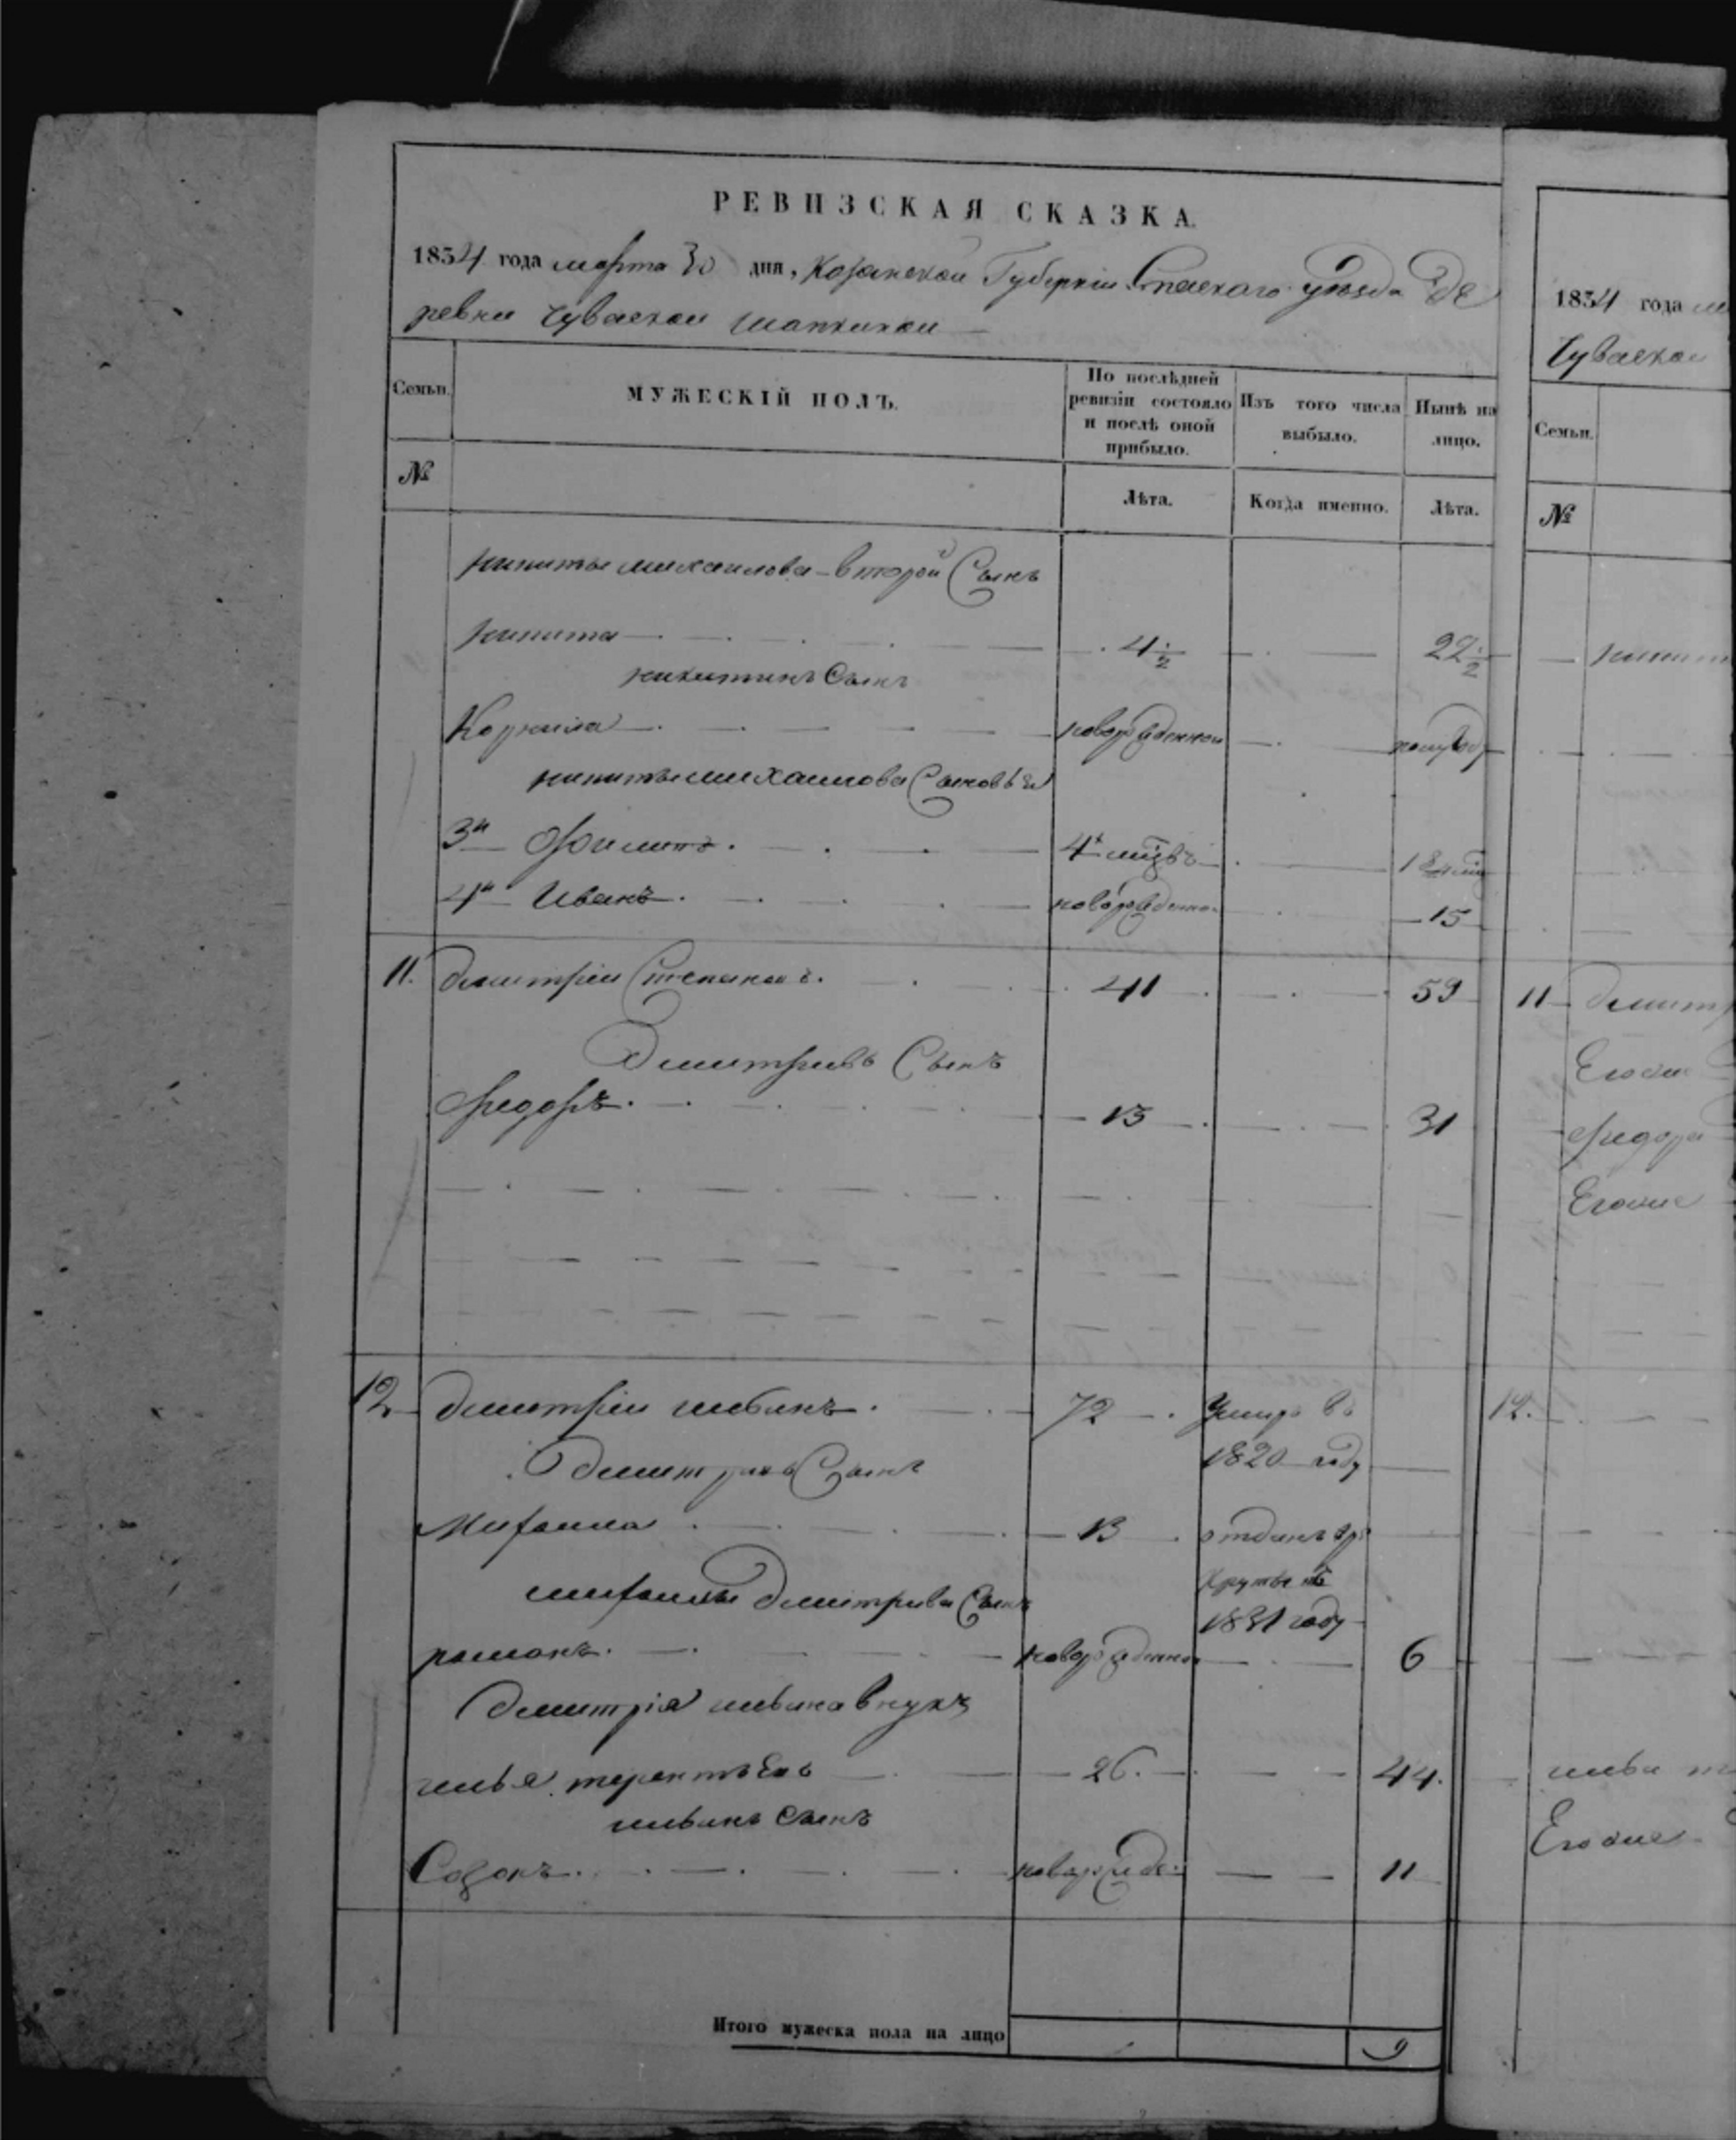 РЕВИЗСКАЯ СКАЗКА.
1834 года марта 30 дня, Козанской Губернiи Спаского уѣзда Де
ревни Чуваской
Семьи.
МУЖЕСКIЙ ПОЛЪ.
По послѣдней ревизiи состояло и послѣ оной прибыло.
Изъ того числа выбыло.
Нынѣ на лицо.
№
Лѣта.
Когда именно.
Лѣта.
никиты михаилова второй Сынъ
никита 4 1/2 22 1/2
никитинъ Сынъ
Корнила новорожденной полугоду
никиты михаилова Сыновья
3й Филипъ 4х 18
4й Иванъ 15
11. дмитрiи Степановъ. 41 59
Дмитривъ Сынъ
Федоръ. 13 31
12 дмитрiи ивынъ. 72 Умиръ въ
1820 году
Дмитривъ Сынъ
Михаила 13 отданъ
рекруты въ
1831 году
михаилы Дмитрива Сынъ
романъ. новорожденной 6
Дмитрiя ивына внукъ
илья терентьевъ 26. 44.
ильинъ Сынъ
Созонъ. новорожде: 11
Итого мужеска пола на лицо 9
1834 года
Чуваской
Семьи.
№
никит
11 дмитр
Егоже
федора
Егоже
12.
ильи
Егоже